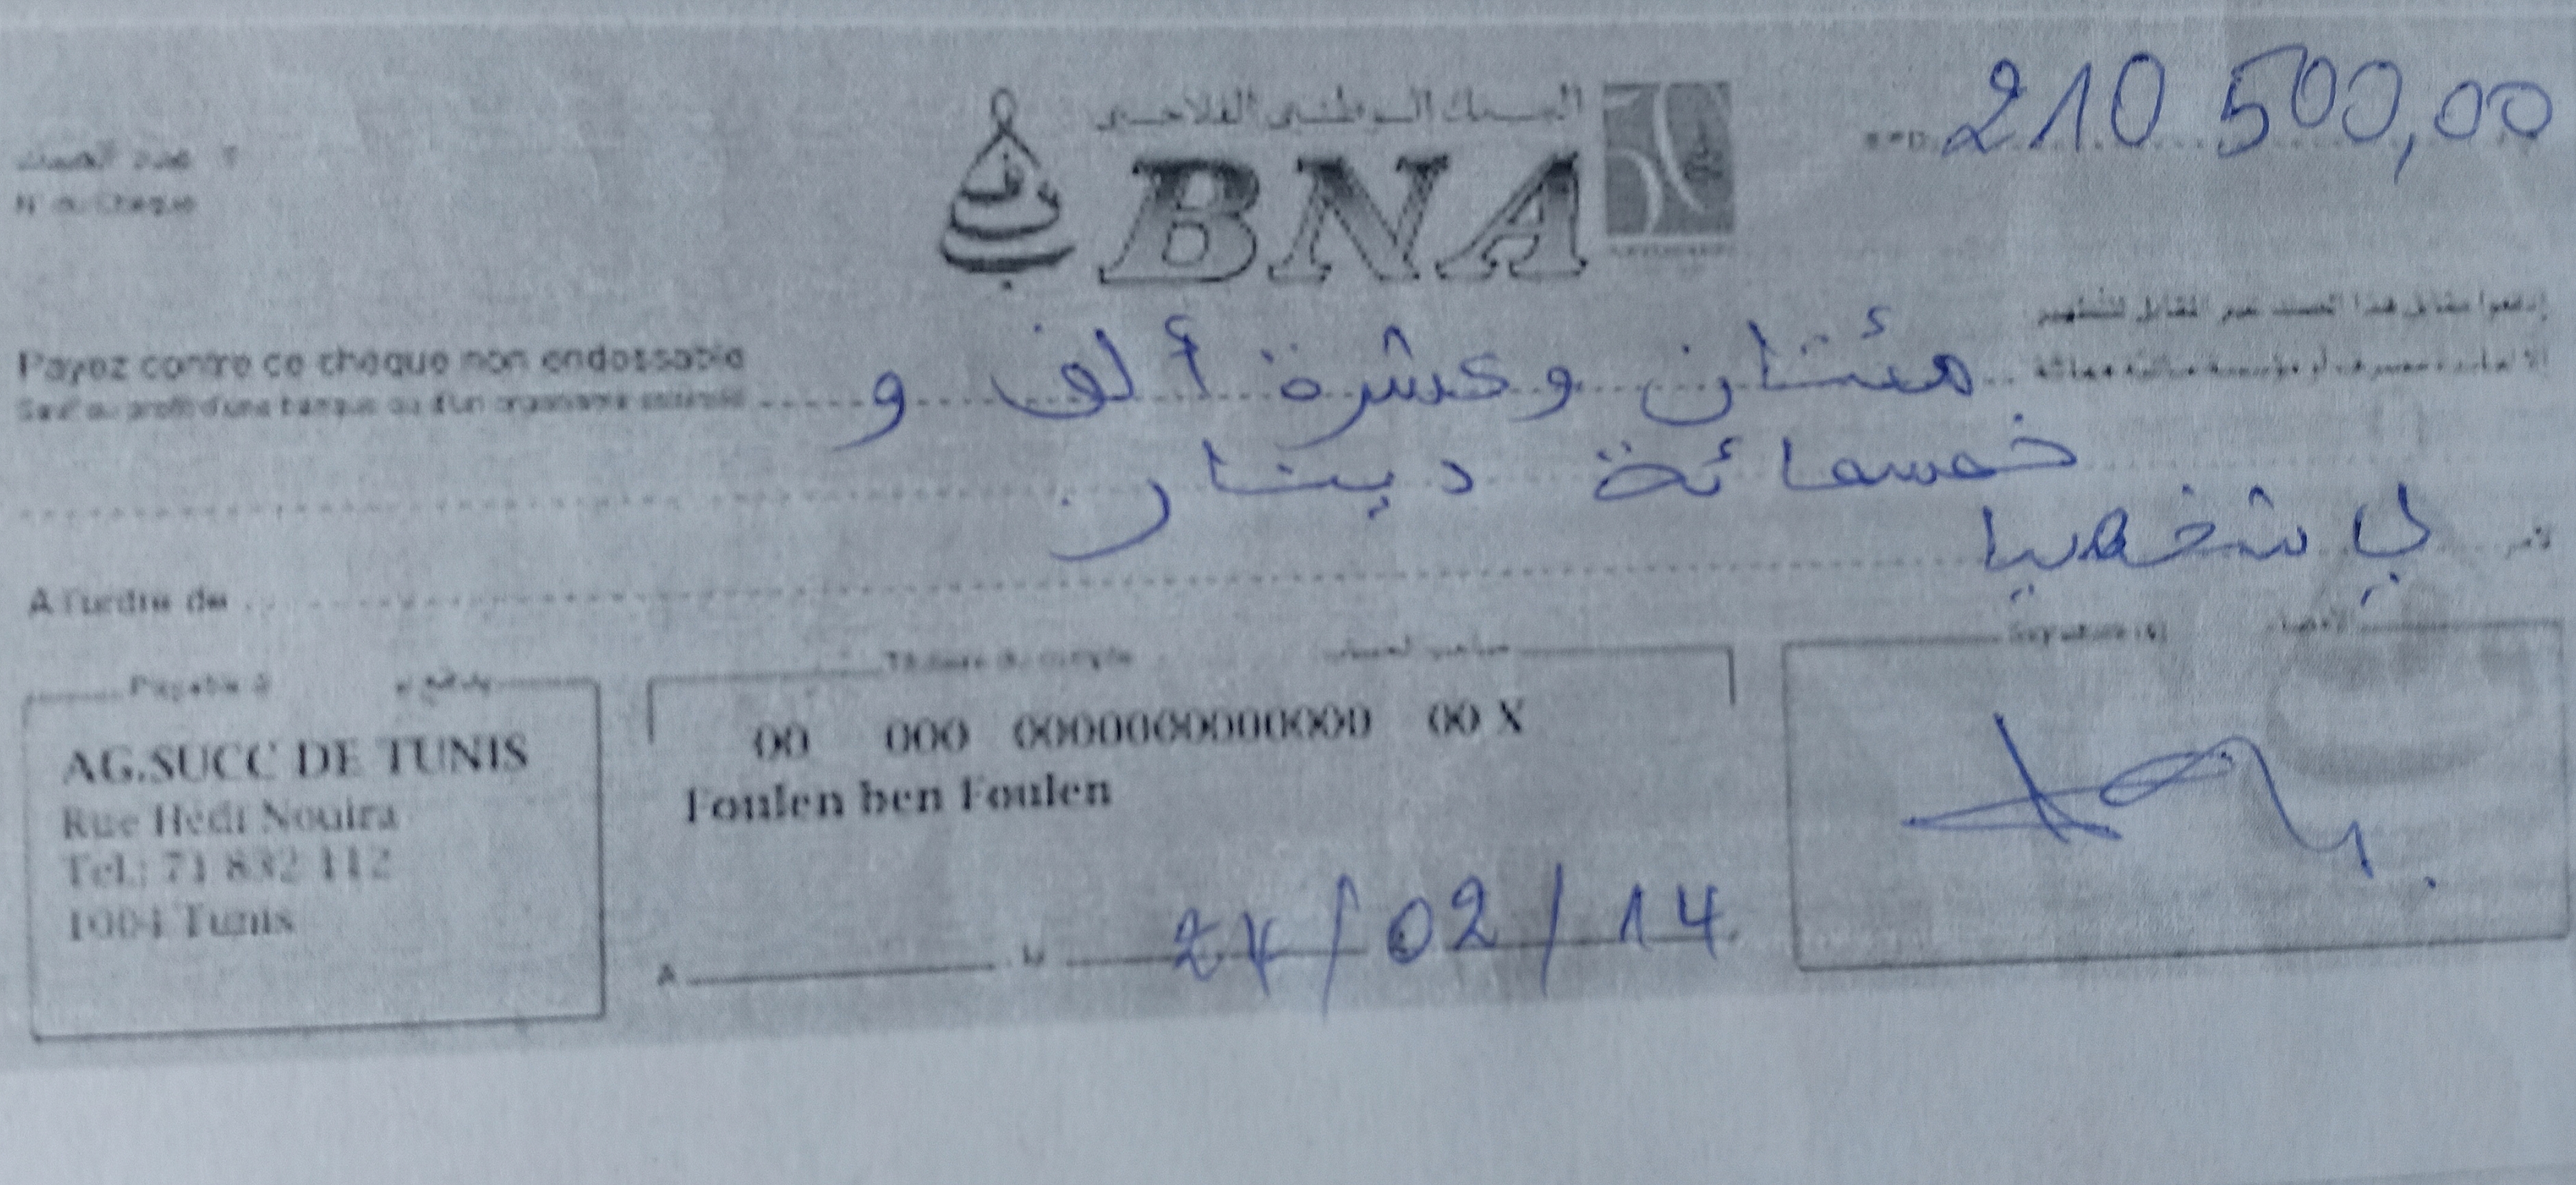 البنك الوطني الفلاحي
BNA
210 500,00
عدد الصك
N° du Chèque
Payez contre ce chèque non endossable
Sauf au profit d'une banque ou d'un organisme assimilé
إدفعوا مقابل هذا الصك غير القابل للتظهير
مئتان وعشرة ألف و
خمسمائة دينار
A l'ordre de
لي شخصيا
لأمر
Payable à
يدفع بـ
AG.SUCC DE TUNIS
Rue Hédi Nouira
Tel.: 71 832 112
1004 Tunis
Titulaire du compte
صاحب الحساب
00 000 0000000000000 00 X
Foulen ben Foulen
A
le
/02/14
Signature(s)
الإمضاء